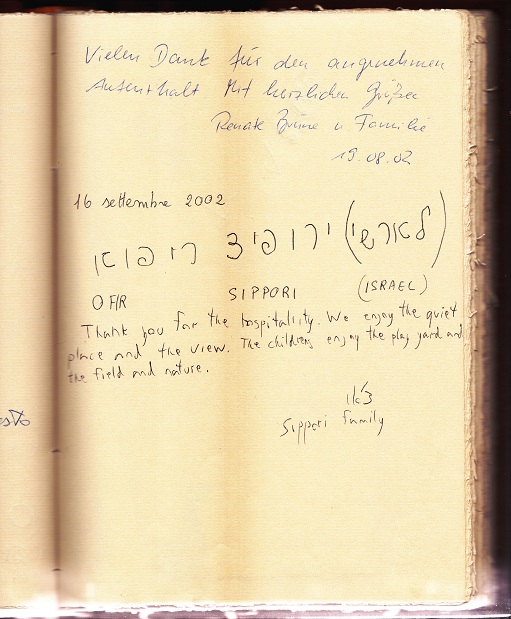 Vielen Dank für den angenehmen
Aufenthalt Mit herzlichen Grüßen
Renate u Familie
19.08.02
16 settembre 2002
אופיר ציפורי (ישראל)
OFIR SIPPORI (ISRAEL)
Thank you for the hospitality. We enjoy the quiet
place and the view. The childrens enjoy the play yard and
the field and nature.
Sippori family